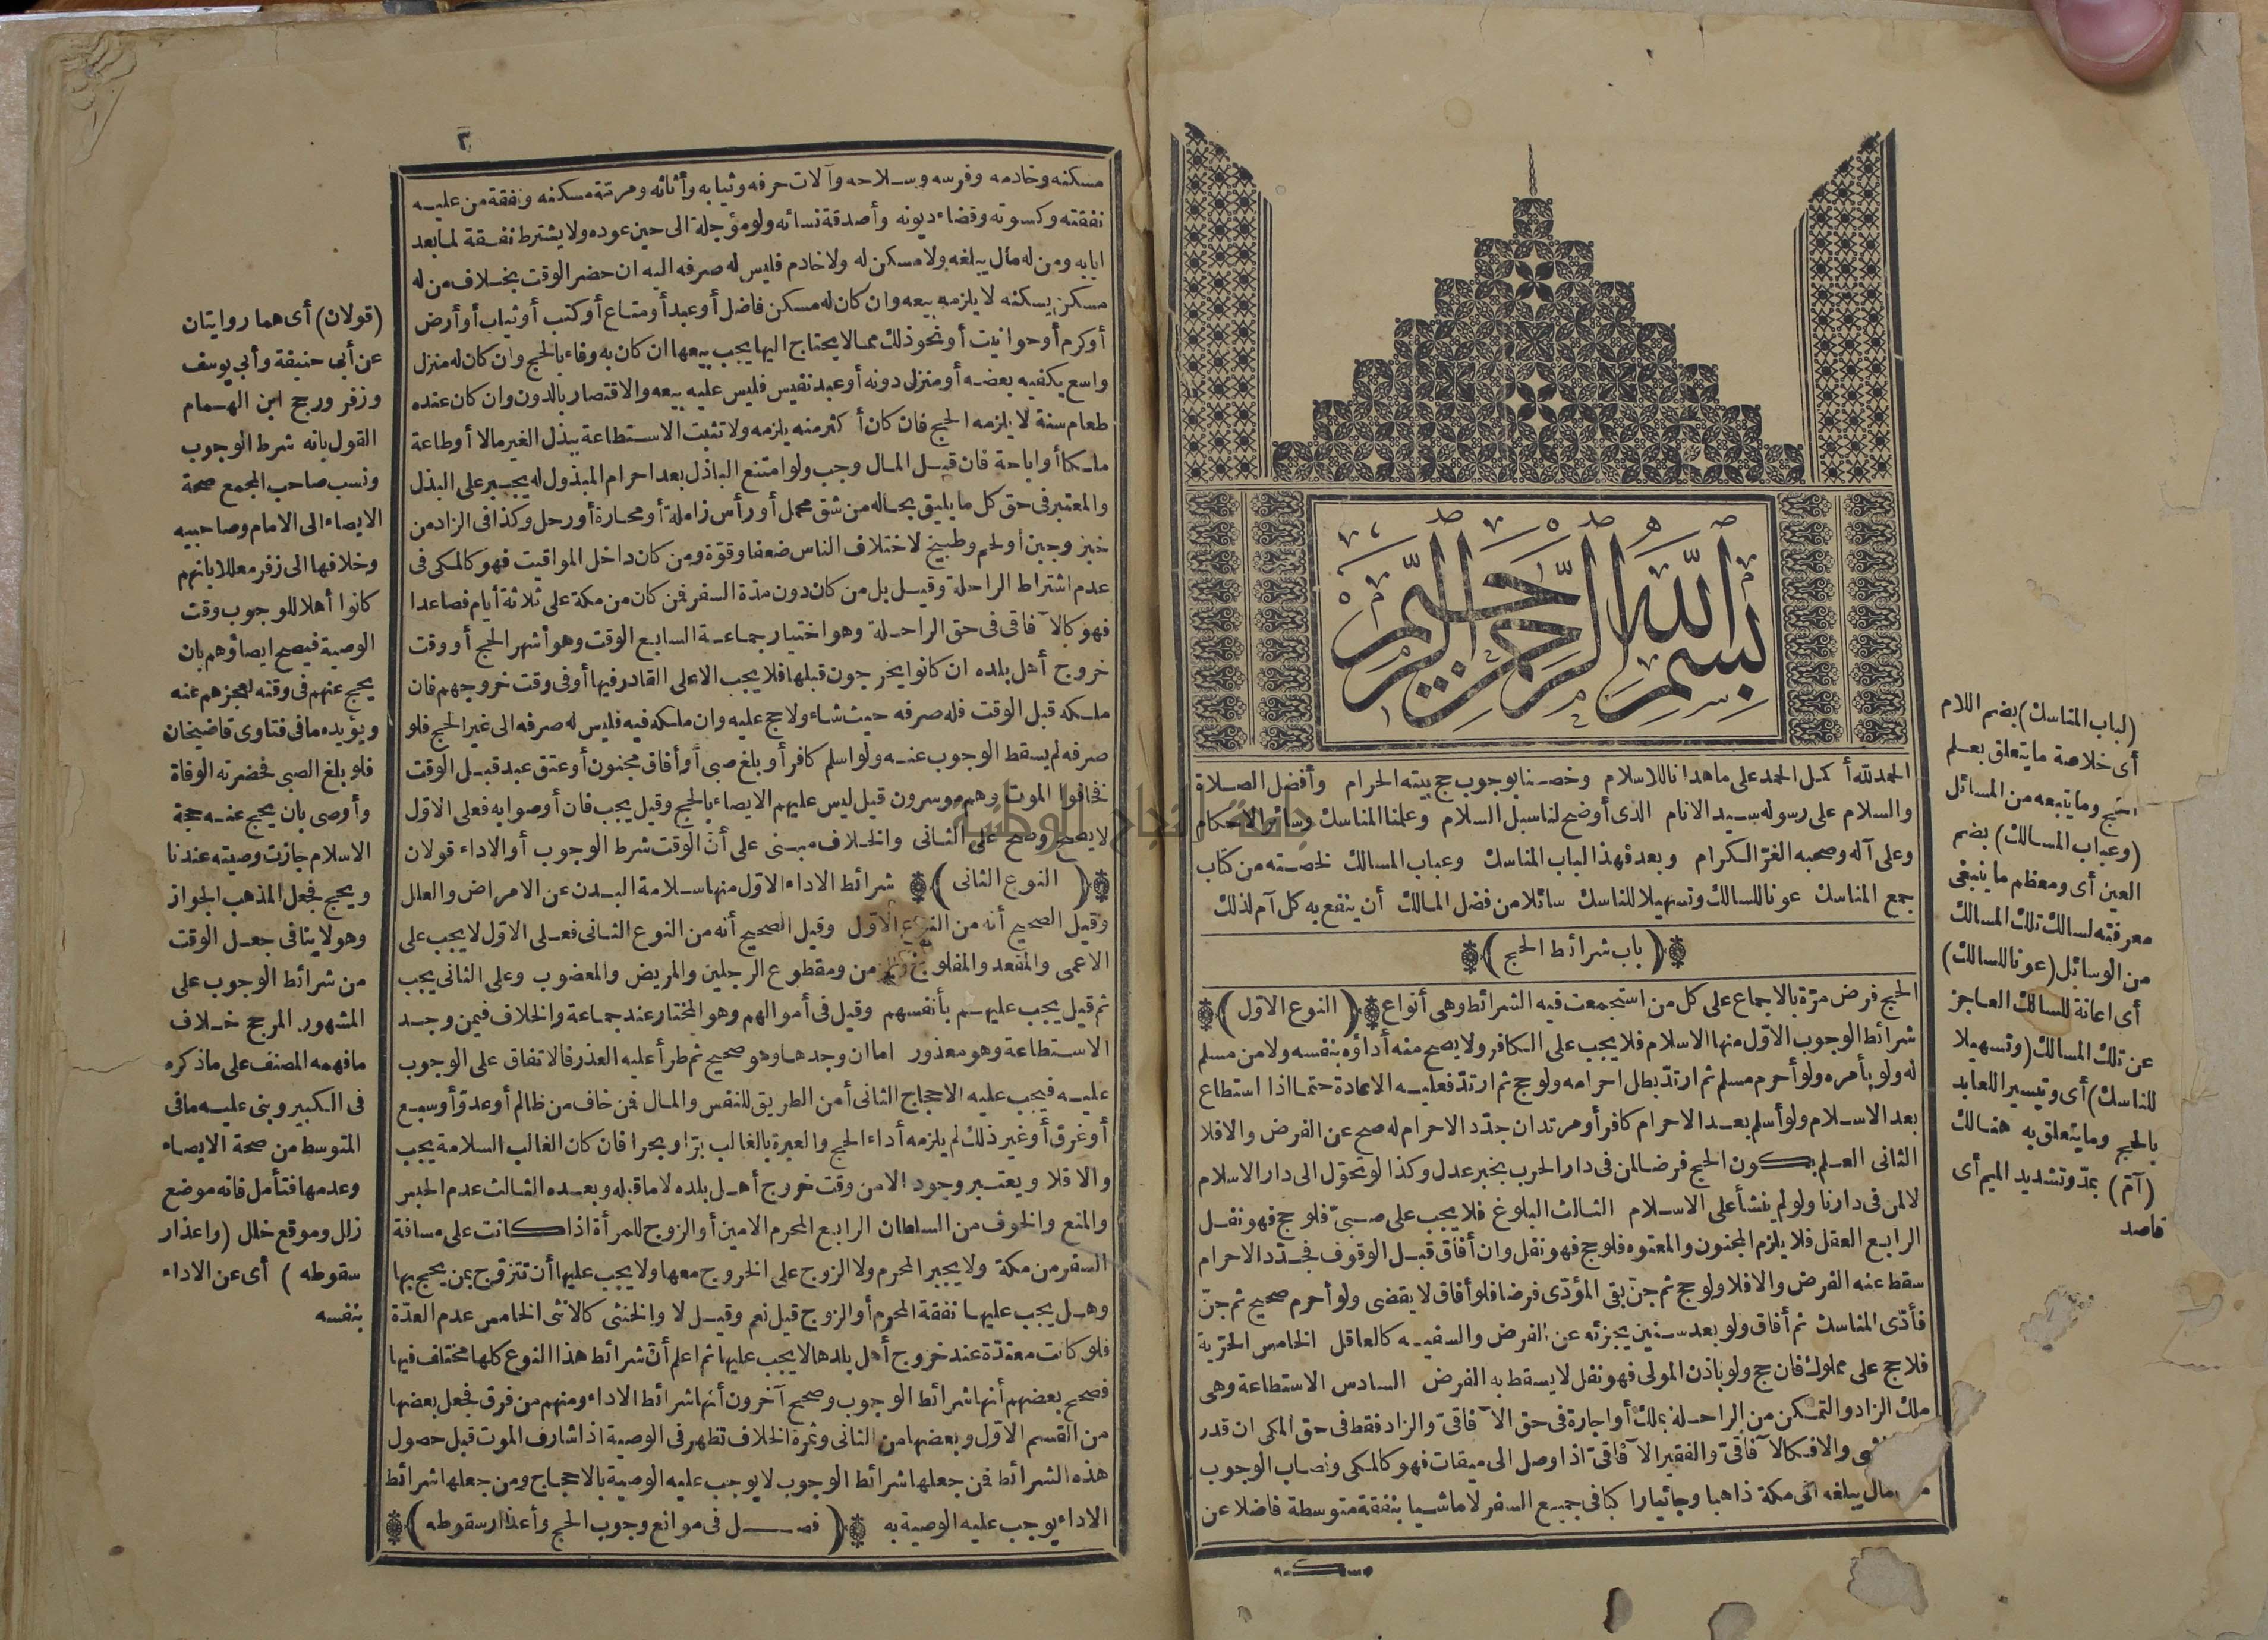 بسم الله الرحمن الرحيم
الحمد لله أكمل الحمد على ما هدانا للاسلام وخصنا بوجوب حج بيته الحرام وأفضل الصلاة
والسلام على رسوله سيد الانام الذى أوضح لنا سبل السلام وعلمنا المناسك وسائر الاحكام
وعلى آله وصحبه الغرّ الكرام وبعد فهذا لباب المناسك وعباب المسالك لخصته من كتاب
جمع المناسك عونا للسالك وتسهيلا للناسك سائلا من فضل المالك أن ينفع به كل آم لذلك
(باب شرائط الحج)
الحج فرض مرّة بالاجماع على كل من استجمعت فيه الشرائط وهى أنواع (النوع الاوّل)
شرائط الوجوب الاوّل منها الاسلام فلا يجب على الكافر ولا يصح منه أداؤه بنفسه ولا من مسلم
له ولو بأمره ولو أحرم مسلم ثم ارتدّ بطل احرامه ولو حج ثم ارتدّ فعليه الاعادة حتما اذا استطاع
بعد الاسلام ولو أسلم بعد الاحرام كافر أو مرتد ان جدّد الاحرام له صح عن الفرض والا فلا
الثانى العلم بكون الحج فرضا لمن فى دار الحرب بخبر عدل وكذا لو تحوّل الى دار الاسلام
لا لمن فى دارنا ولو لم ينشأ على الاسلام الثالث البلوغ فلا يجب على صبىّ فلو حج فهو نفل
الرابع العقل فلا يلزم المجنون والمعتوه فلو حج فهو نفل وان أفاق قبل الوقوف فجدّد الاحرام
سقط عنه الفرض والا فلا ولو حج ثم جنّ بقى المؤدّى فرضا فلو أفاق لا يقضى ولو أحرم صحيح ثم جنّ
فأدّى المناسك ثم أفاق ولو بعد سنين يجزئه عن الفرض والسفيه كالعاقل الخامس الحرّية
فلا حج على مملوك فان حج ولو باذن المولى فهو نفل لا يسقط به الفرض السادس الاستطاعة وهى
ملك الزاد والتمكن من الراحلة بملك أو اجارة فى حق الآفاقىّ والزاد فقط فى حق المكى ان قدر
والا فكالآفاقىّ والفقير الآفاقىّ اذا وصل الى ميقات فهو كالمكى ونصاب الوجوب
مال يبلغه الى مكة ذاهبا وجائيا راكبا فى جميع السفر لا ماشيا بنفقة متوسطة فاضلا عن
(لباب المناسك) بضم اللام
أى خلاصة ما يتعلق بعلم
الحج وما يتبعه من المسائل
(وعباب المسالك) بضم
العين أى ومعظم ما ينبغى
معرفته لسالك تلك المسالك
من الوسائل (عونا للسالك)
أى اعانة للسالك العاجز
عن تلك المسالك (وتسهيلا
للناسك) أى وتيسيرا للعابد
بالحج وما يتعلق به هنالك
(آمّ) بمدّ وتشديد الميم أى
قاصد
٣
مسكنه وخادمه وفرسه وسلاحه وآلات حرفه وثيابه وأثاثه ومرمّة مسكنه ونفقة من عليه
نفقته وكسوته وقضاء ديونه وأصدقة نسائه ولو مؤجلة الى حين عوده ولا يشترط نفقة لما بعد
ايابه ومن له مال يبلغه ولا مسكن له ولا خادم فليس له صرفه اليه ان حضر الوقت بخلاف من له
مسكن يسكنه لا يلزمه بيعه وان كان له مسكن فاضل أو عبد أو متاع أو كتب أو ثياب أو أرض
أو كرم أو حوانيت أو نحو ذلك مما لا يحتاج اليها يجب بيعها ان كان به وفاء بالحج وان كان له منزل
واسع يكفيه بعضه أو منزل دونه أو عبد نفيس فليس عليه بيعه والاقتصار بالدون وان كان عنده
طعام سنة لا يلزمه الحج فان كان أكثر منه يلزمه ولا تثبت الاستطاعة ببذل الغير مالا أو طاعة
ملكا أو اباحة فان قبل المال وجب ولو امتنع الباذل بعد احرام المبذول له يجبر على البذل
والمعتبر فى حق كل ما يليق بحاله من شق محمل أو رأس زاملة أو محارة أو رحل وكذا فى الزاد من
خبز وجبن أو لحم وطبيخ لاختلاف الناس ضعفا وقوّة ومن كان داخل المواقيت فهو كالمكى فى
عدم اشتراط الراحلة وقيل بل من كان دون مدّة السفر فمن كان من مكة على ثلاثة أيام فصاعدا
فهو كالآفاقى فى حق الراحلة وهو اختيار جماعة السابع الوقت وهو أشهر الحج أو وقت
خروج أهل بلده ان كانوا يخرجون قبلها فلا يجب الا على القادر فيها أو فى وقت خروجهم فان
ملكه قبل الوقت فله صرفه حيث شاء ولا حج عليه وان ملكه فيه فليس له صرفه الى غير الحج فلو
صرفه لم يسقط الوجوب عنه ولو اسلم كافر أو بلغ صبى أو أفاق مجنون أو عتق عبد قبل الوقت
فخافوا الموت وهم موسرون قيل ليس عليهم الايصاء بالحج وقيل يجب فان أوصوا به فعلى الاوّل
لا يصح وصح على الثانى والخلاف مبنى على أنّ الوقت شرط الوجوب أو الاداء قولان
(النوع الثانى) شرائط الاداء الاوّل منها سلامة البدن عن الامراض والعلل
وقيل الصحيح أنه من النوع الاوّل وقيل الصحيح أنه من النوع الثانى فعلى الاول لا يجب على
الاعمى والمقعد والمفلوج والزمن ومقطوع الرجلين والمريض والمعضوب وعلى الثانى يجب
ثم قيل يجب عليهم بأنفسهم وقيل فى أموالهم وهو المختار عند جماعة والخلاف فيمن وجد
الاستطاعة وهو معذور اما ان وجدها وهو صحيح ثم طرأ عليه العذر فالاتفاق على الوجوب
عليه فيجب عليه الاحجاج الثانى أمن الطريق للنفس والمال فمن خاف من ظالم أو عدوّ أو سبع
أو غرق أو غير ذلك لم يلزمه أداء الحج والعبرة بالغالب برّا وبحرا فان كان الغالب السلامة يجب
والا فلا ويعتبر وجود الامن وقت خروج أهل بلده لا ما قبله وبعده الثالث عدم الحبس
والمنع والخوف من السلطان الرابع المحرم الامين أو الزوج للمرأة اذا كانت على مسافة
السفر من مكة ولا يجبر المحرم ولا الزوج على الخروج معها ولا يجب عليها أن تتزوّج بمن يحج بها
وهل يجب عليها نفقة المحرم أو الزوج قيل نعم وقيل لا والخنثى كالانثى الخامس عدم العدّة
فلو كانت معتدّة عند خروج أهل بلدها لا يجب عليها ثم اعلم أنّ شرائط هذا النوع كلها مختلف فيها
فصحح بعضهم أنها شرائط الوجوب وصحح آخرون أنها شرائط الاداء ومنهم من فرق فجعل بعضها
من القسم الاوّل وبعضها من الثانى وثمرة الخلاف تظهر فى الوصية اذا شارف الموت قبل حصول
هذه الشرائط فمن جعلها شرائط الوجوب لا يوجب عليه الوصية بالاحجاج ومن جعلها شرائط
الاداء يوجب عليه الوصية به (فصل فى موانع وجوب الحج وأعذار سقوطه)
(قولان) أى هما روايتان
عن أبى حنيفة وأبي يوسف
وزفر ورجح ابن الهمام
القول بانه شرط الوجوب
ونسب صاحب المجمع صحة
الايصاء الى الامام وصاحبيه
وخلافها الى زفر معللا بانهم
كانوا أهلا للوجوب وقت
الوصية فيصح ايصاؤهم بان
يحج عنهم فى وقته لعجزهم عنه
ويؤيده ما فى فتاوى قاضيخان
فلو بلغ الصبى فحضرته الوفاة
وأوصى بان يحج عنه حجة
الاسلام جازت وصيته عندنا
ويحج فجعل المذهب الجواز
وهو لا ينافى جعل الوقت
من شرائط الوجوب على
المشهور المرجح خلاف
ما فهمه المصنف على ما ذكره
فى الكبير وبنى عليه ما فى
المتوسط من صحة الايصاء
وعدمها فتأمل فانه موضع
زلل وموقع خلل (واعذار
سقوطه) أى عن الاداء
بنفسه